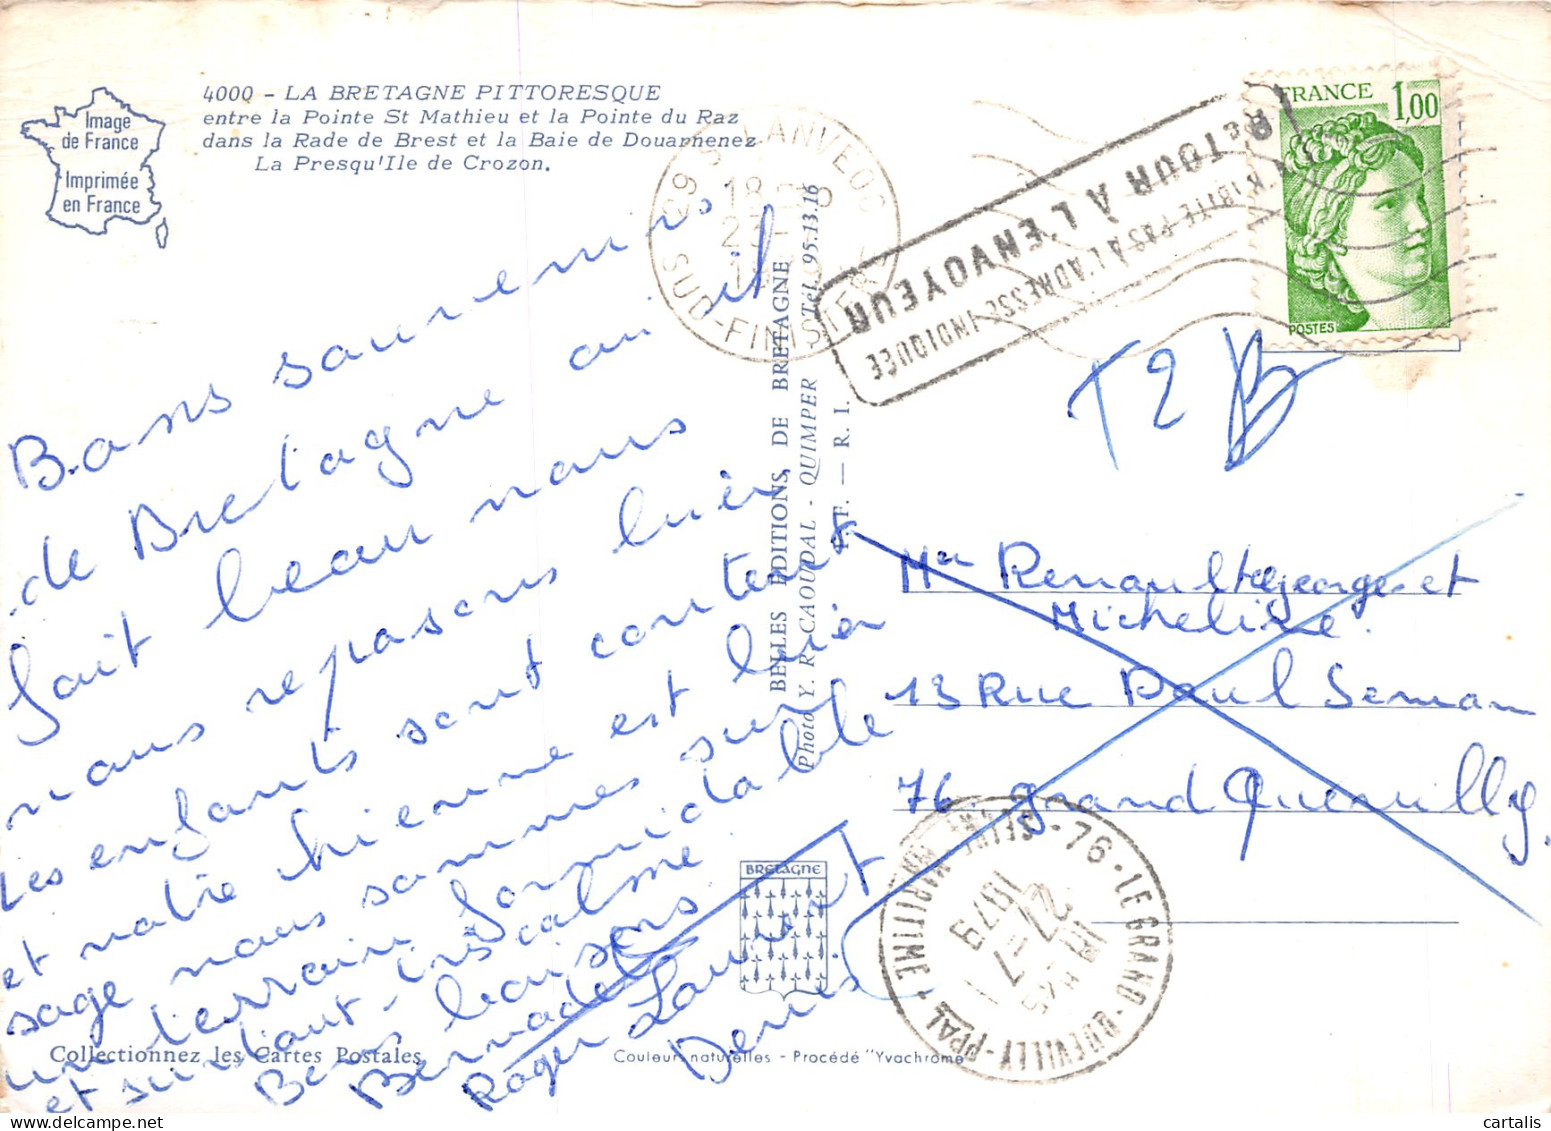 4000 - LA BRETAGNE PITTORESQUE
entre la Pointe St Mathieu et la Pointe du Raz
dans la Rade de Brest et la Baie de Douarnenez
La Presqu'Ile de Crozon.
Image
de France
Imprimée
en France
Bons souvenirs
de Bretagne où il
fait beau nous
nous reposons hier
les enfants sont content
et notre chienne est bien
sage nous sommes sur
un terrain formidable
et surtout très calme
Bons baisers
Bernadette
Roger Laurent
Denis
BELLES EDITIONS DE BRETAGNE
Photo Y. R. CAOUDAL - QUIMPER Tél. 95.13.16
F. — R. I.
29 S LANVEOC
18
SUD-FINISTERE
RETOUR A L'ENVOYEUR
N'HABITE PAS A L'ADRESSE INDIQUEE
FRANCE 1,00
POSTES
T2B
Mr Renault Georges et
Micheline
13 Rue Paul Semam
76. Grand Quevilly.
76 · LE GRAND-QUEVILLY-PPAL · SEINE MARITIME
18 H 45
27 - 7
1979
BRETAGNE
Collectionnez les Cartes Postales
Couleurs naturelles - Procédé "Yvachrome"
cartalis